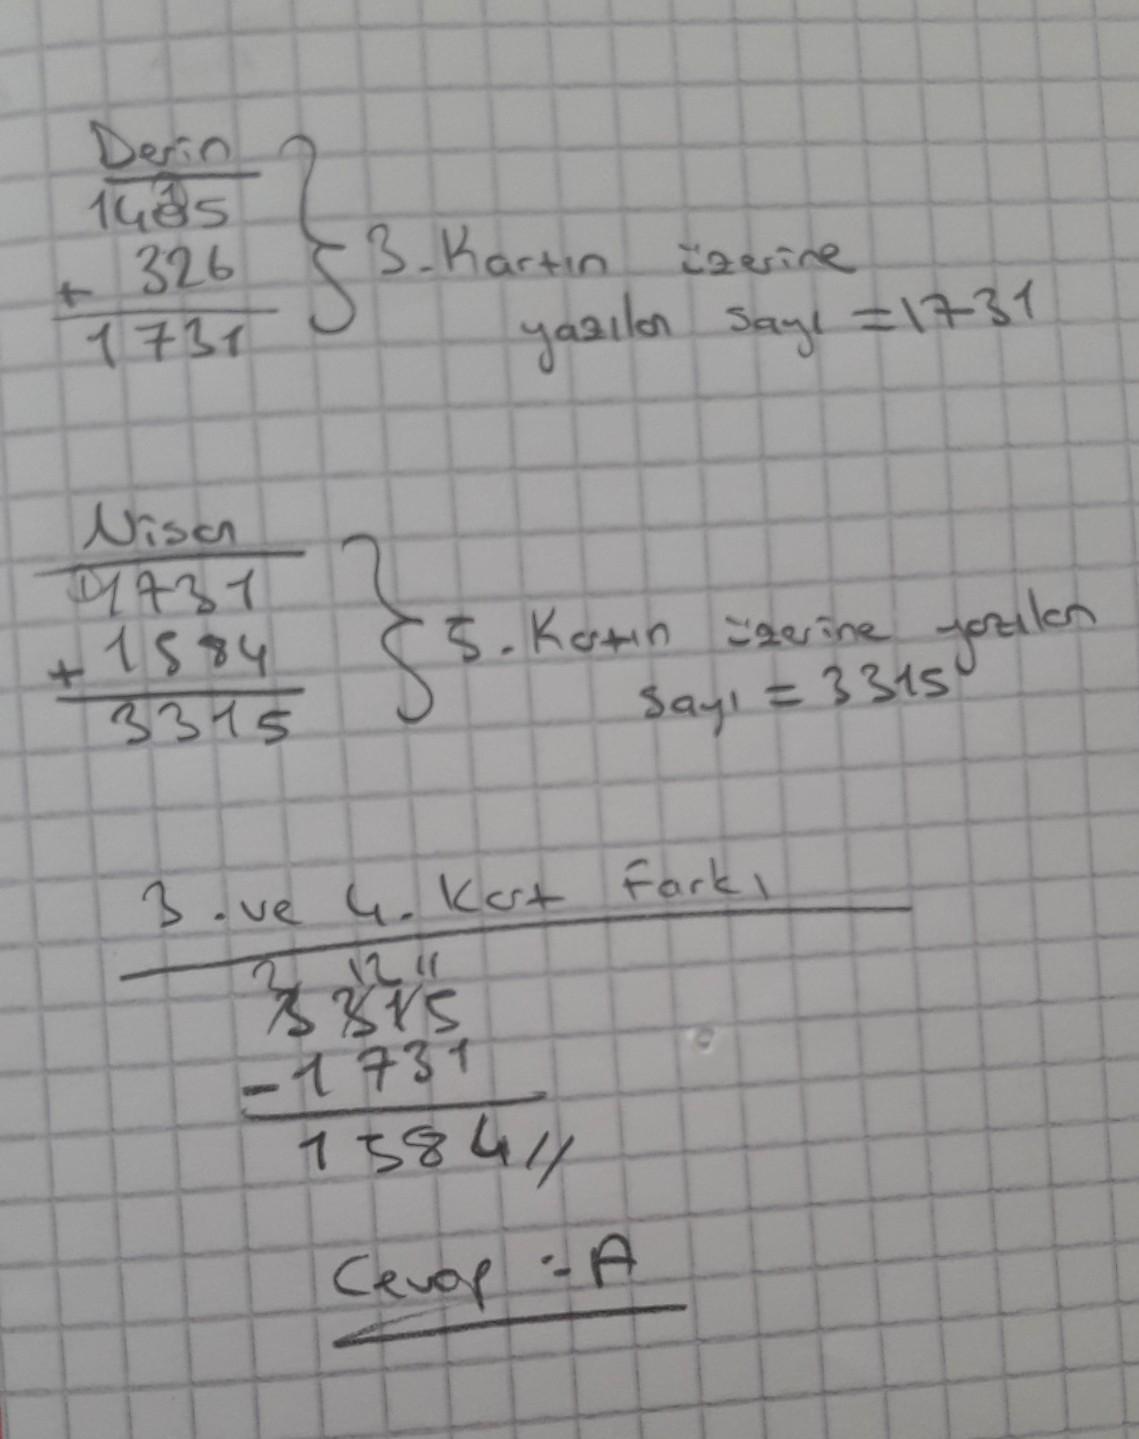 Derin
1405
+ 326
1731
3. Kartın üzerine
yazılan sayı = 1731
Nisan
1731
+ 1584
3315
5. Kartın üzerine yazılan
sayı = 3315
3. ve 4. Kart Farkı
2 12 11
3315
- 1731
1584 //
Cevap = A